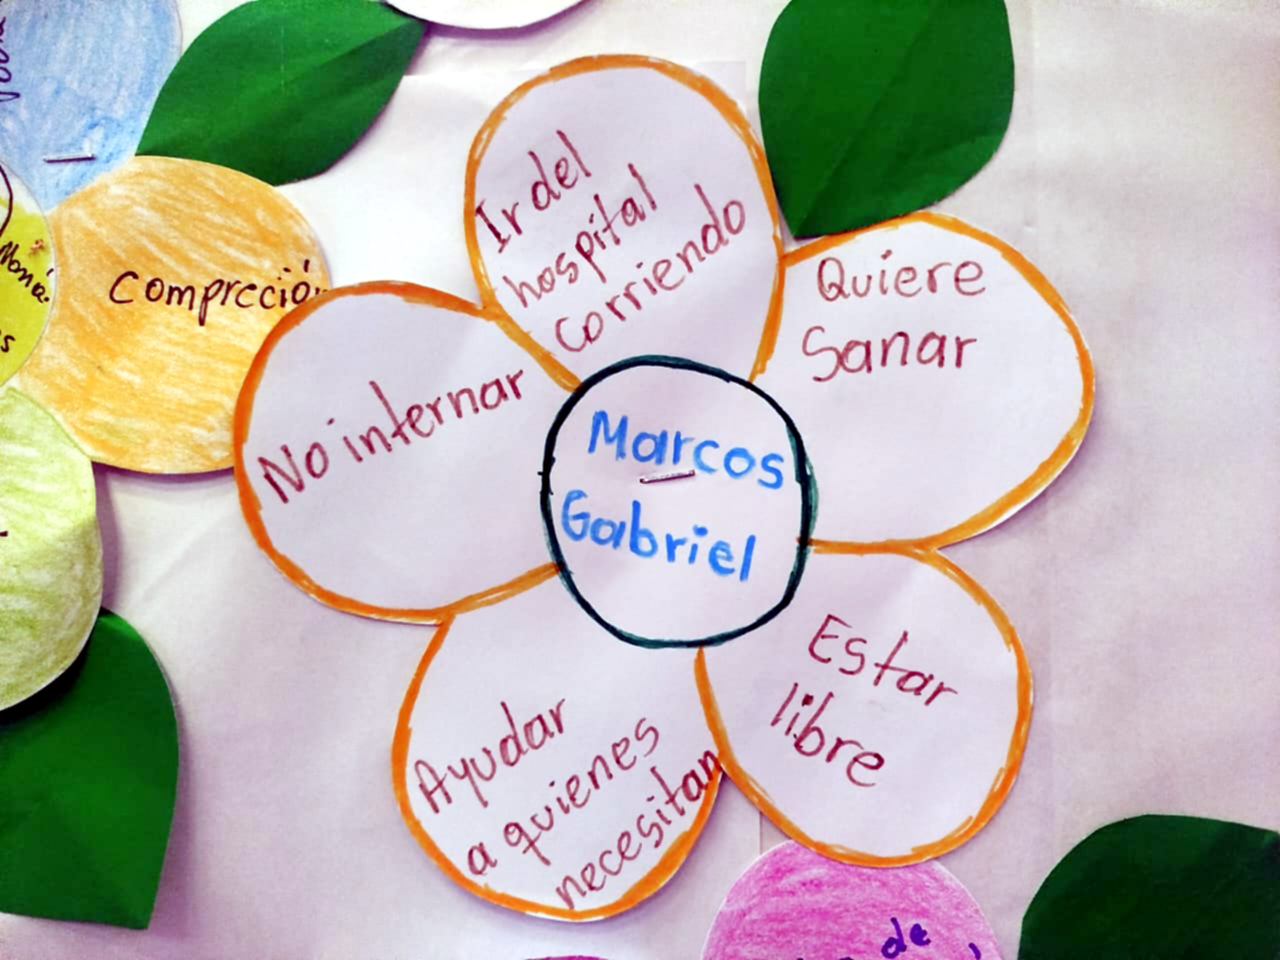 Ir del
hospital
corriendo
Quiere
Sanar
Estar
libre
Ayudar
a quienes
necesitan
No internar
Marcos
Gabriel
Comprcción
de